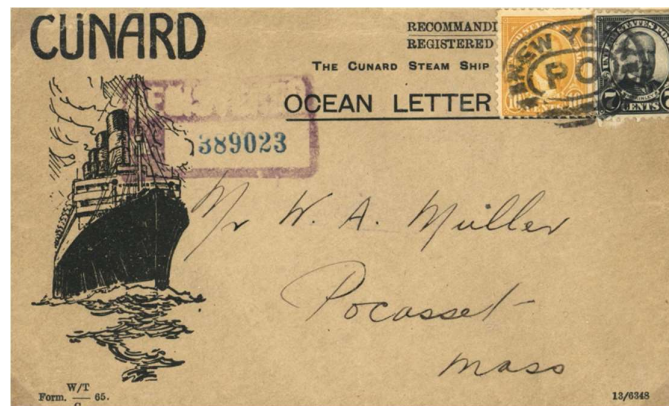 CUNARD
RECOMMANDI
REGISTERED
THE CUNARD STEAM SHIP
OCEAN LETTER
389023
NEW YO
CENTS
Mr W. A. Muller
Pocasset
Mass
Form. W/T 65.
13/6348